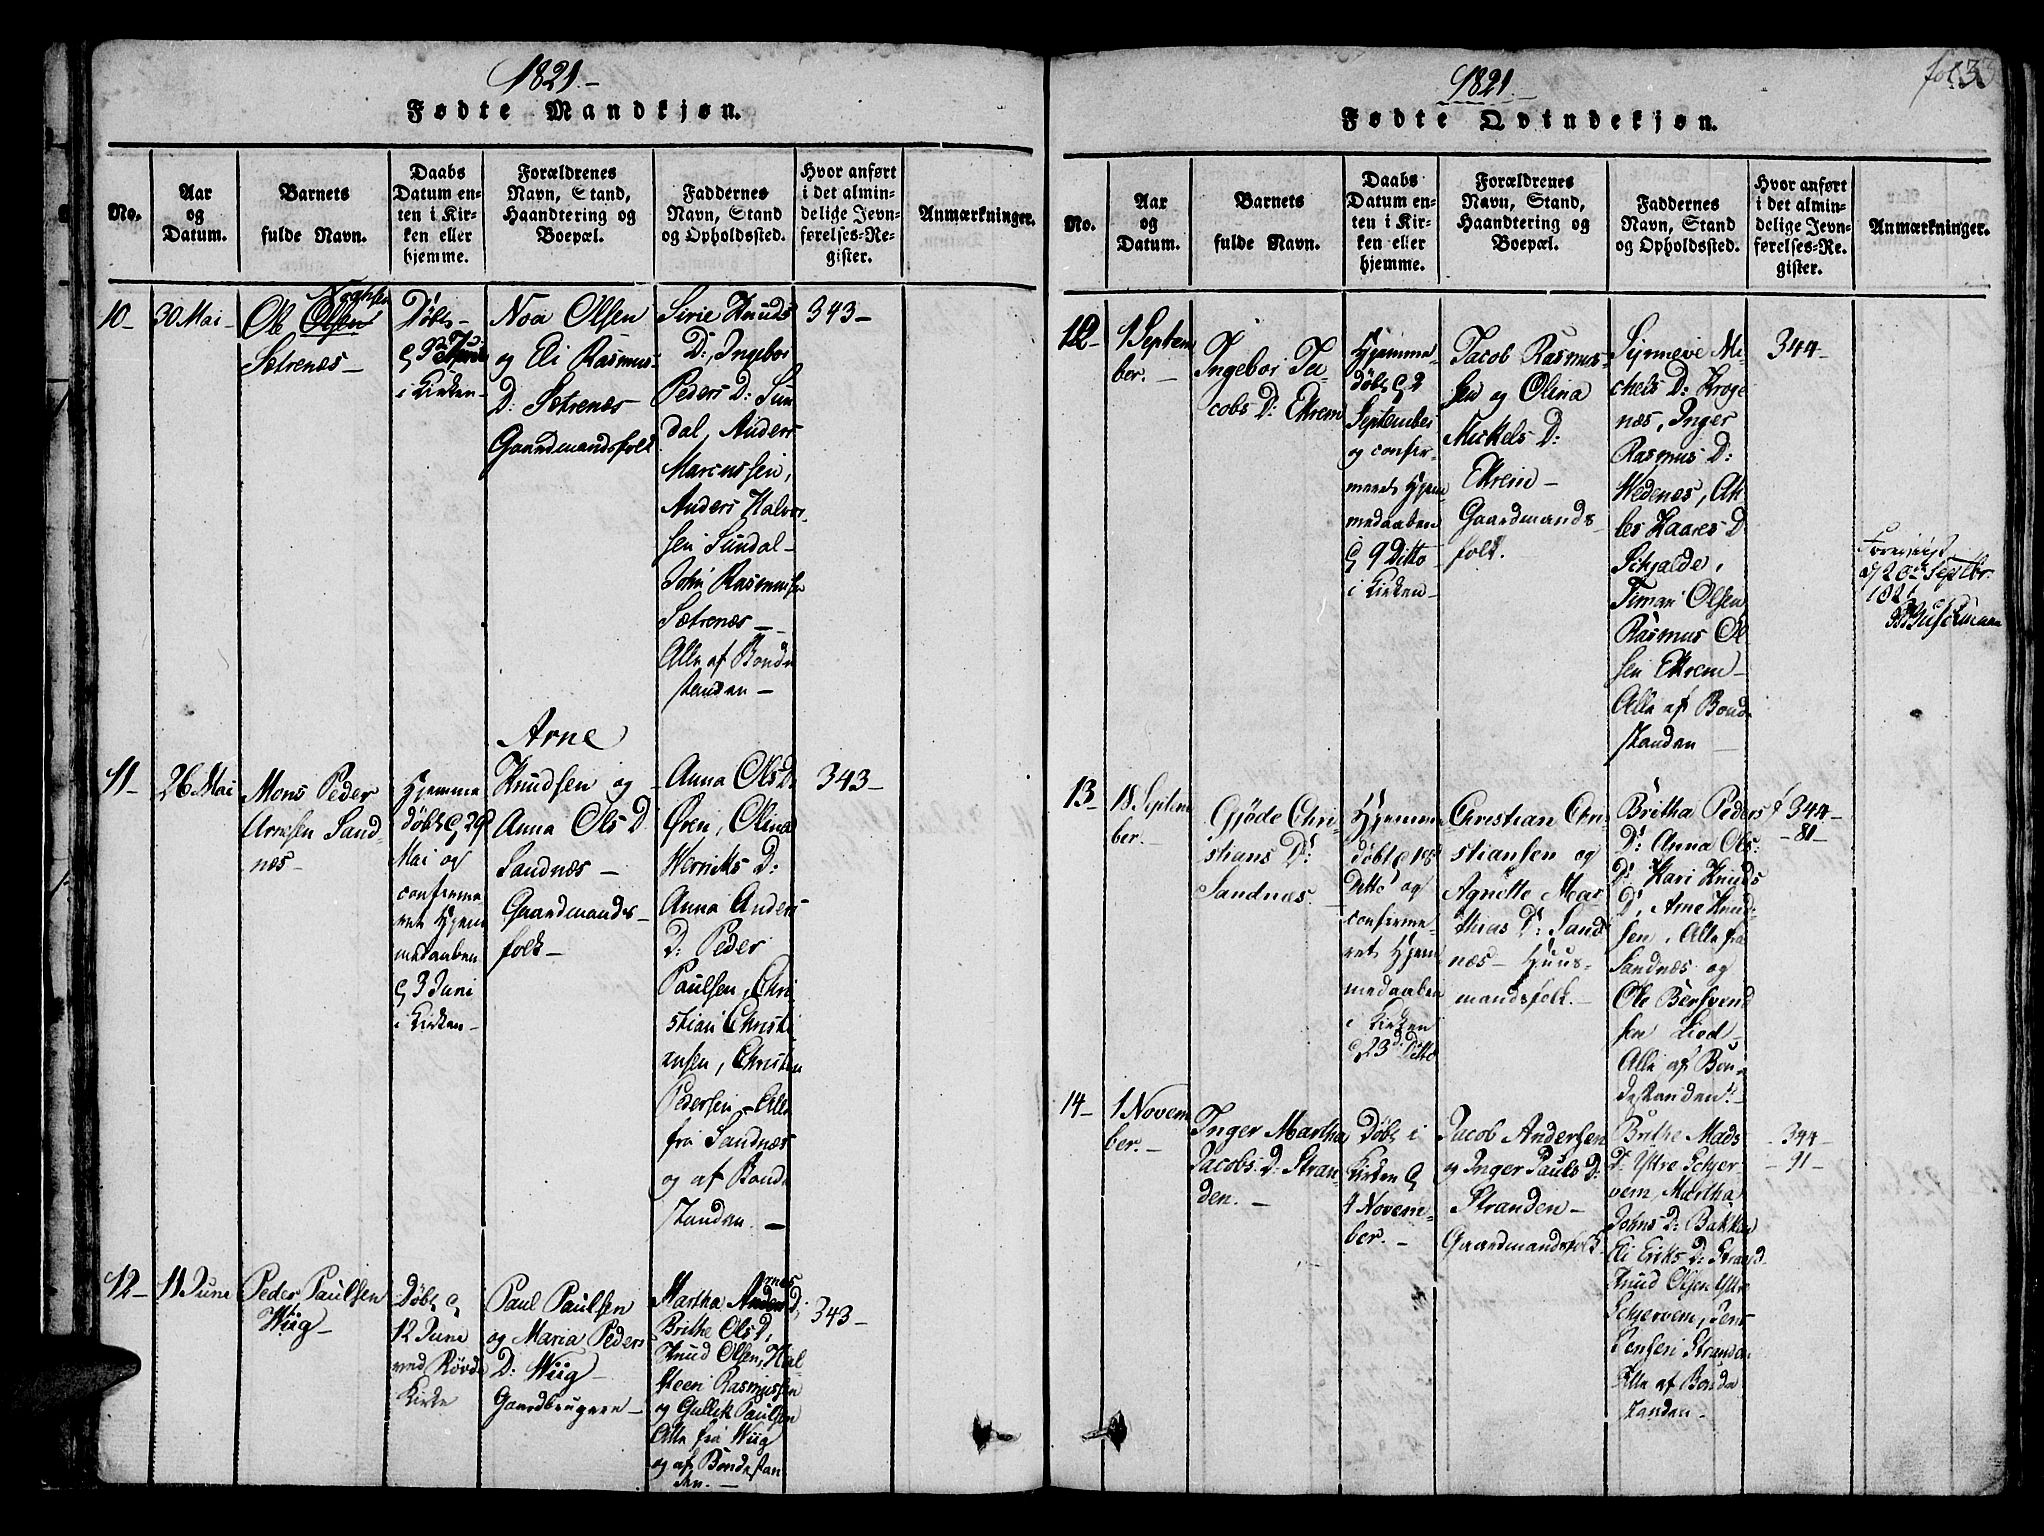 1821.
Fødte Mandkjøn.
No.
Aar
og
Datum.
Barnets
fulde Navn.
Daabs
Datum en-
ten i Kir-
ken eller
hjemme.
Forældrenes
Navn, Stand,
Haandtering og
Boepæl.
Faddernes
Navn, Stand
og Opholdssted.
Hvor anført
i det almin-
delige Jevn-
førelses-Re-
gister.
Anmærkninger.
10-
30 Mai-
Ole Olsen
Sætrenes-
Døbt-
i Kirken-
Noa Olsen
og Eli Rasmus-
D: Sætrenes
Gaardmandsfolk
Sirie Knuds
D: Ingebor
Peders D: Sun
dal, Anders
Marcussen,
Anders Halvor-
sen Sundal-
John Rasmussen
Sætrenes-
Alle af Bonde
standen-
343-
11-
26 Mai
Mons Peder
Arnesen Sand-
nes-
Hjemme
døbt d 29
Mai og
confirme
ret Hjem
medaaben
d 3 Juni
i Kirken-
Arne
Knudsen og
Anna Ols D.
Sandnæs-
Gaardmands-
folk-
Anna Ols D.
Øren, Olina
Henriks D:
Anna Anders
D: Peder
Paulsen, Chri
stian Christi
ansen, Christen
Pedersen- Alle
fra Sandnæs
og af Bonde
standen.-
343-
12-
11 June
Peder Paulsen
Wiig-
Døbt d
12 June
ved Røvde
Kirke
Paul Paulsen
og Maria Peders
D: Wiig-
Gaardbrugere-
Martha
Brithe Ols D,
Knud Olsen, Hal-
steen Rasmussen
og Gullik Paulsen
Alle fra Wiig
og af Bondestan
den.-
343-
fol: 33
1821.
Fødte Qvindekjøn.
No.
Aar
og
Datum.
Barnets
fulde Navn.
Daabs
Datum en-
ten i Kir-
ken eller
hjemme.
Forældrenes
Navn, Stand,
Haandtering og
Boepæl.
Faddernes
Navn, Stand
og Opholdssted.
Hvor anført
i det almin-
delige Jevn-
førelses-Re-
gister.
Anmærkninger.
12-
1 Septem
ber.-
Ingebor Ja-
cobs D: Ekrem
Hjemme-
døbt d 2
September
og confir-
meret Hjem
medaaben
d 9 Ditto
i Kirken-
Jacob Rasmus-
sen og Olina
Mickels D:
Ekrem-
Gaardmands-
folk.
Synneve Mi-
chels D: Kroge
næs, Inger
Rasmus D:
Hedenes, Ah
les Haaes D
Schjalde,
Timan Olsen
Rasmus Ol
sen Ekrem-
Alle af Bond
standen
344-
20de Septbr.
1821
13-
18 Septem
ber.-
Gjøde Chri-
stians D:
Sandnæs.
Hjemme
døbt d 18
Ditto og
confirme-
ret Hjem
medaaben
i Kirken
d 23 Ditto
Christian Chri-
stiansen og
Agnette Mat
thias D: Sand
næs- Huus-
mandsfolk.-
Britha Peders
D: Anna Ols-
D: Kari Knuds
D, Arne Knud-
sen, Alle fra
Sandnæs og
Ole Bersvend
sen Lied-
Alle af Bon-
destanden.-
344-
-81-
14-
1 Novem
ber.-
Inger Martha
Jacobs D: Stran-
den.-
Døbt i
Kirken d
4 Novem-
ber.-
Jacob Andersen
og Inger Pauls D:
Stranden-
Gaardmandsfolk.
Brithe Mads
D: Yttre Schjer-
vem, Martha
Johns D: Bakken
Eli Eriks D: Strand-
Knud Olsen Yttre
Schjervem, Jens
Jensen Stranden
Alle af Bonde
standen-
344-
-91-